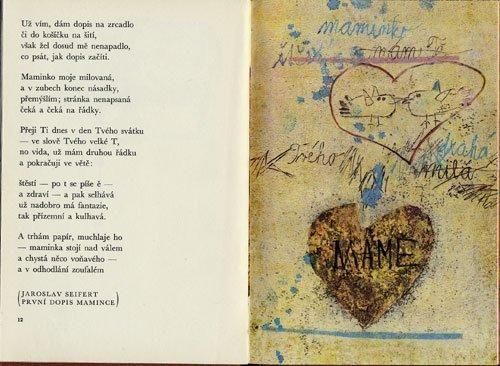 Už vím, dám dopis na zrcadlo
či do košíčku na šití,
však žel dosud mě nenapadlo,
co psát, jak dopis začíti.
Maminko moje milovaná,
a v zubech konec násadky,
přemýšlím; stránka nenapsaná
čeká a čeká na řádky.
Přeji Ti dnes v den Tvého svátku
— ve slově Tvého velké T,
no vida, už mám druhou řádku
a pokračuji ve větě:
štěstí — po t se píše ě —
a zdraví — a pak selhává
už nadobro má fantazie,
tak přízemní a kulhavá.
A trhám papír, muchlaje ho
— maminka stojí nad válem
a chystá něco voňavého —
a v odhodlání zoufalém
(JAROSLAV SEIFERT
PRVNÍ DOPIS MAMINCE)
12
maminko
mám Tě
Tvého
drahá
milá
MÁME